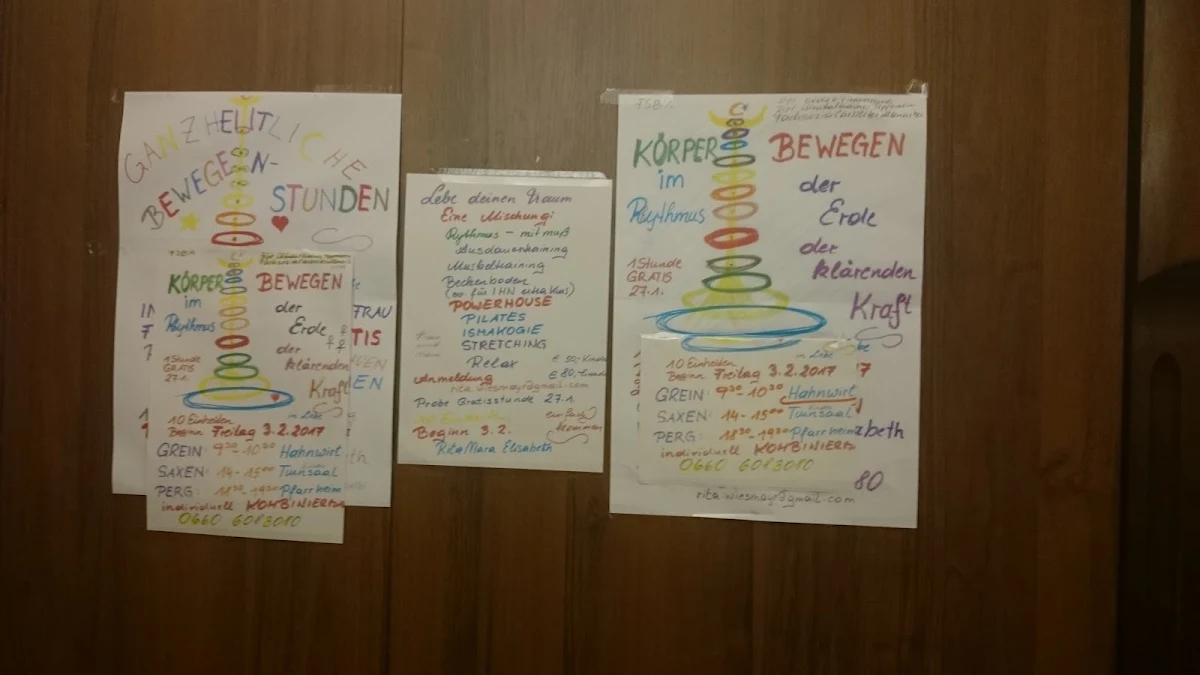 GANZHEITLICHE
BEWEGEN-
STUNDEN
FRAU
TIS
EN
KÖRPER BEWEGEN
im der
Rhythmus Erde
der
klärenden
Kraft
1 Stunde
GRATIS
27.1.
10 Einheiten in Liebe
Beginn Freitag 3.2.2017
GREIN: 9³⁰-10³⁰ Hahnwirt
SAXEN: 14-15⁰⁰ Turnsaal
PERG: 18³⁰-19³⁰ Pfarrheim
individuell KOMBINIERBAR
0660 6083010
Lebe deinen Traum
Eine Mischung:
Rythmus - mit muß
Ausdauertraining
Muskeltraining
Beckenboden
POWERHOUSE
PILATES
ISMAKOGIE
STRETCHING
Relax
€ 50,-
Anmeldung € 80,-
rita.wiesmayr@gmail.com
Probe Gratisstunde 27.1.
einfach
Beginn 3.2. kommen
Rita Mara Elisabeth
KÖRPER BEWEGEN
im der
Rhythmus Erde
der
klärenden
Kraft
1 Stunde
GRATIS
27.1.
10 Einheiten in Liebe
Beginn Freitag 3.2.2017
GREIN: 9³⁰-10³⁰ Hahnwirt
SAXEN: 14-15⁰⁰ Turnsaal
PERG: 18³⁰-19³⁰ Pfarrheim
individuell KOMBINIERB
0660 6083010
80
rita.wiesmayr@gmail.com